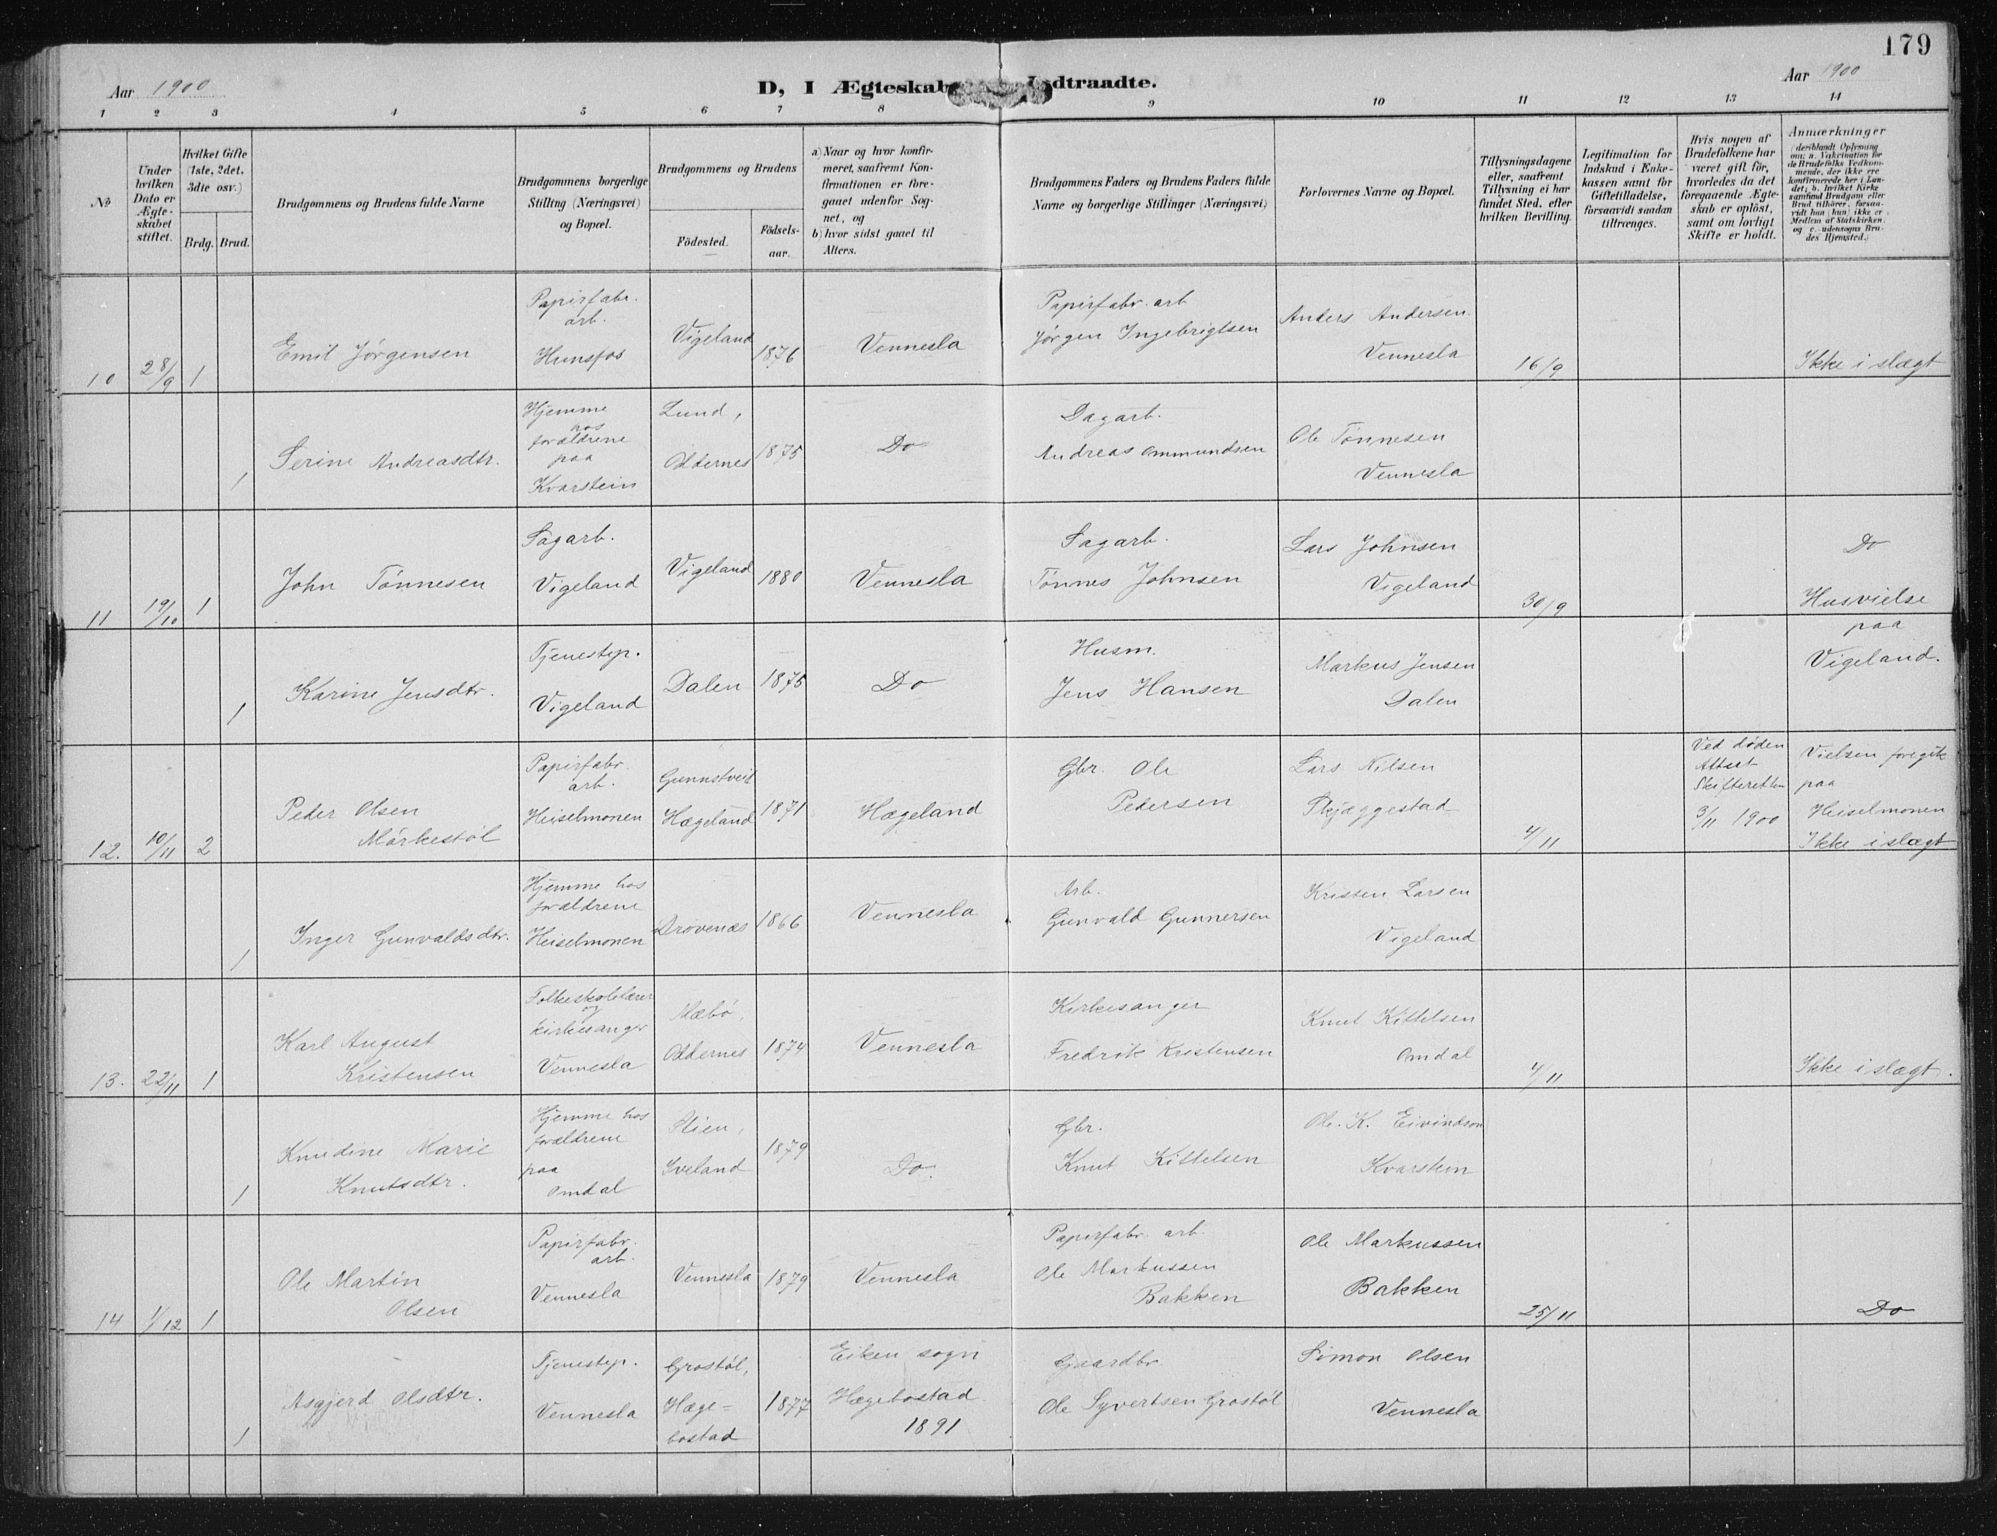 179
Aar 1900
D, I Ægteskab Indtraadte.
Aar 1900
1 2 3 4 5 6 7 8 9 10 11 12 13 14
№
Under hvilken Dato er Ægteskabet stiftet.
Hvilket Gifte (1ste, 2det, 3die osv.)
Brdg. Brud.
Brudgommens og Brudens fulde Navne
Brudgommens borgerlige Stilling (Næringsvei) og Bopæl.
Brudgommens og Brudens
Födested.
Födselsaar.
a) Naar og hvor konfirmeret, saafremt Konfirmationen er foregaaet udenfor Sognet, og
b) hvor sidst gaaet til Alters.
Brudgommens Faders og Brudens Faders fulde Navne og borgerlige Stillinger (Næringsvei)
Forlovernes Navne og Bopæl.
Tillysningsdagene eller, saafremt Tillysning ei har fundet Sted, efter hvilken Bevilling.
Legitimation for Indskud i Enkekassen samt for Giftetilladelse, forsaavidt saadan tiltrænges.
Hvis nogen af Brudefolkene har været gift før, hvorledes da det foregaaende Ægteskab er oplöst, samt om lovligt Skifte er holdt.
Anmærkninger
(deriblandt Oplysning om: a. Vakcination for de Brudefolks Vedkommende, der ikke ere konfirmerede her i Landet; b. hvilket Kirkesamfund Brudgom eller Brud tilhörer, forsaavidt han (hun) ikke er Medlem af Statskirken, og c. udensogns Brudes Hjemsted.)
10 28/9 1 Emil Jørgensen
Papirfabr. arb. Hunsfos
Vigeland 1876
Vennesla
Papirfabr. arb Jørgen Ingebrigtsen
Anders Andersen Vennesla
16/9
Ikke i slægt
1 Serine Andreasdtr.
Hjemme hos forældrene paa Kvarstein
Lund, Oddernes 1875
Do
Dagarb. Andreas Ommundsen
Ole Tønnesen Vennesla
11 19/10 1 John Tønnesen
Sagarb. Vigeland
Vigeland 1880
Vennesla
Sagarb. Tønnes Johnsen
Lars Johnsen Vigeland
30/9
Do
Husvielse paa Vigeland.
1 Karine Jensdtr.
Tjenestep. Vigeland
Dalen 1875
Do
Husm. Jens Hansen
Markus Jensen Dalen
12. 10/11 2 Peder Olsen Mørkestøl
Papirfabr. arb. Heiselmonen
Gunnstveit Hægeland 1871
Hægeland
Gbr. Ole Pedersen
Lars Nilsen Skjæggestad
4/11
Ved døden Attest Skifteretten 3/11 1900
Vielsen foregik paa Heiselmonen Ikke i slægt
1 Inger Gunvaldsdtr.
Hjemme hos forældrene Heiselmonen
Drovenæs 1866
Vennesla
Arb. Gunvald Gunnersen
Kristen Larsen Vigeland
13. 22/11 1 Karl August Kristensen
Folkeskolelærer og kirkesanger Vennesla
Mæbø, Oddernes 1874
Vennesla
Kirkesanger Fredrik Kristensen
Knut Kittelsen Omdal
4/11
Ikke i slægt.
1 Knudine Marie Knutsdtr.
Hjemme hos forældrene paa Omdal
Stien, Iveland 1879
Do.
Gbr. Knut Kittelsen
Ole. K. Eivindson Kvarstein
14 1/12 1 Ole Martin Olsen
Papirfabr. arb. Vennesla
Vennesla 1879
Vennesla
Papirfabr. arb. Ole Markussen Bakken
Ole Markussen Bakken
25/11
Do
1 Asgjerd Olsdtr.
Tjenestep. Vennesla
Grostøl, Hæge=bostad 1877
Eiken sogn Hægebostad 1891
Gaardbr. Ole Syvertsen Grostøl
Simon Olsen Vennesla